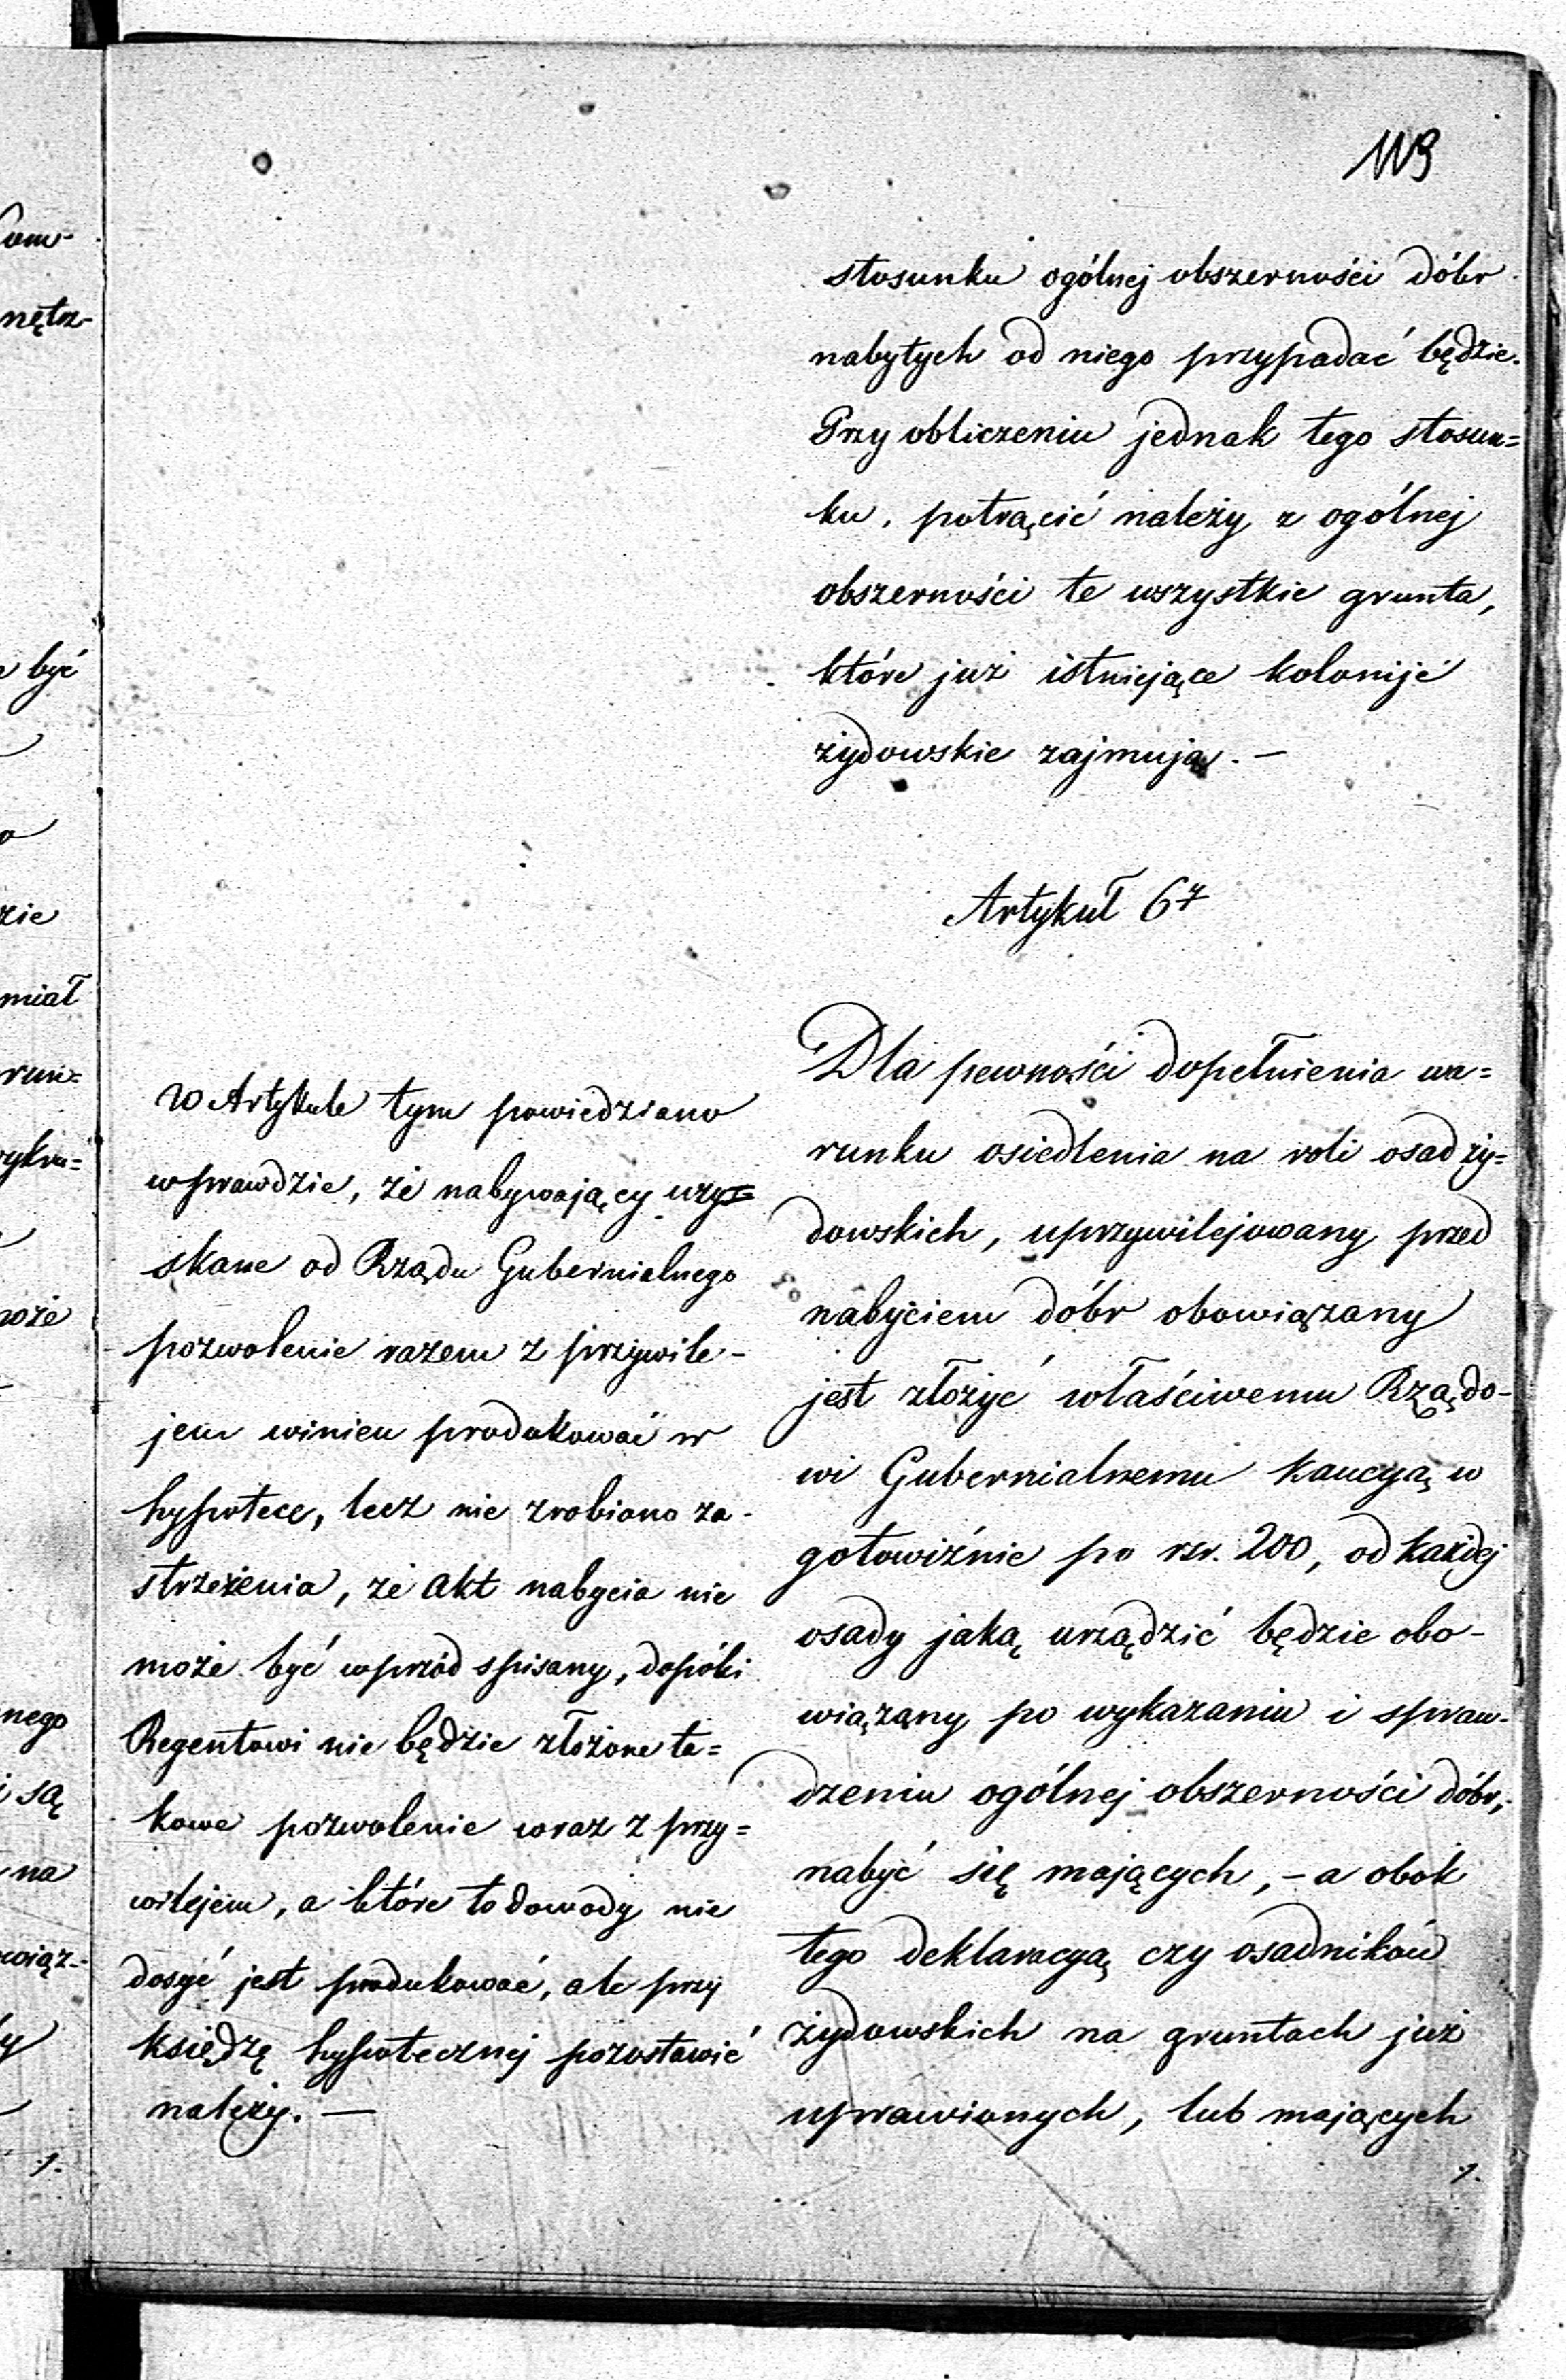 119
stosunku ogólnej obszerności dóbr
nabytych od niego przypadać będzie.
Przy obliczeniu jednak tego stosun=
ku, potrącić należy z ogólnej
obszerności te wszystkie grunta,
które już istniejące kolonije
żydowskie zajmują. —
Artykuł 67
Dla pewności dopełnienia wa=
runku osiedlenia na roli osad ży=
dowskich, uprzywilejowany przed
nabyciem dóbr obowiązany
jest złożyć właściwemu Rządo-
wi Gubernialnemu kaucyą w
gotowiźnie po rsr. 200, od każdej
osady jaką urządzić będzie obo-
wiązany po wykazaniu i spraw-
dzeniu ogólnej obszerności dóbr,
nabyć się mających, - a obok
tego deklaracyą czy osadników
żydowskich na gruntach już
uprawionych, lub mających
W Artykule tym powiedziano
wprawdzie, że nabywający uzy=
skane od Rządu Gubernialnego
pozwolenie razem z przywile-
jem winien produkować w
hypotece, lecz nie zrobiono za-
strzeżenia, że akt nabycia nie
może być wprzód spisany, dopóki
Regentowi nie będzie złożone ta=
kowe pozwolenie wraz z przy=
wilejem, a które to dowody nie
dosyć jest produkować, ale przy
księdzę hypotecznej pozostawić
należy. —